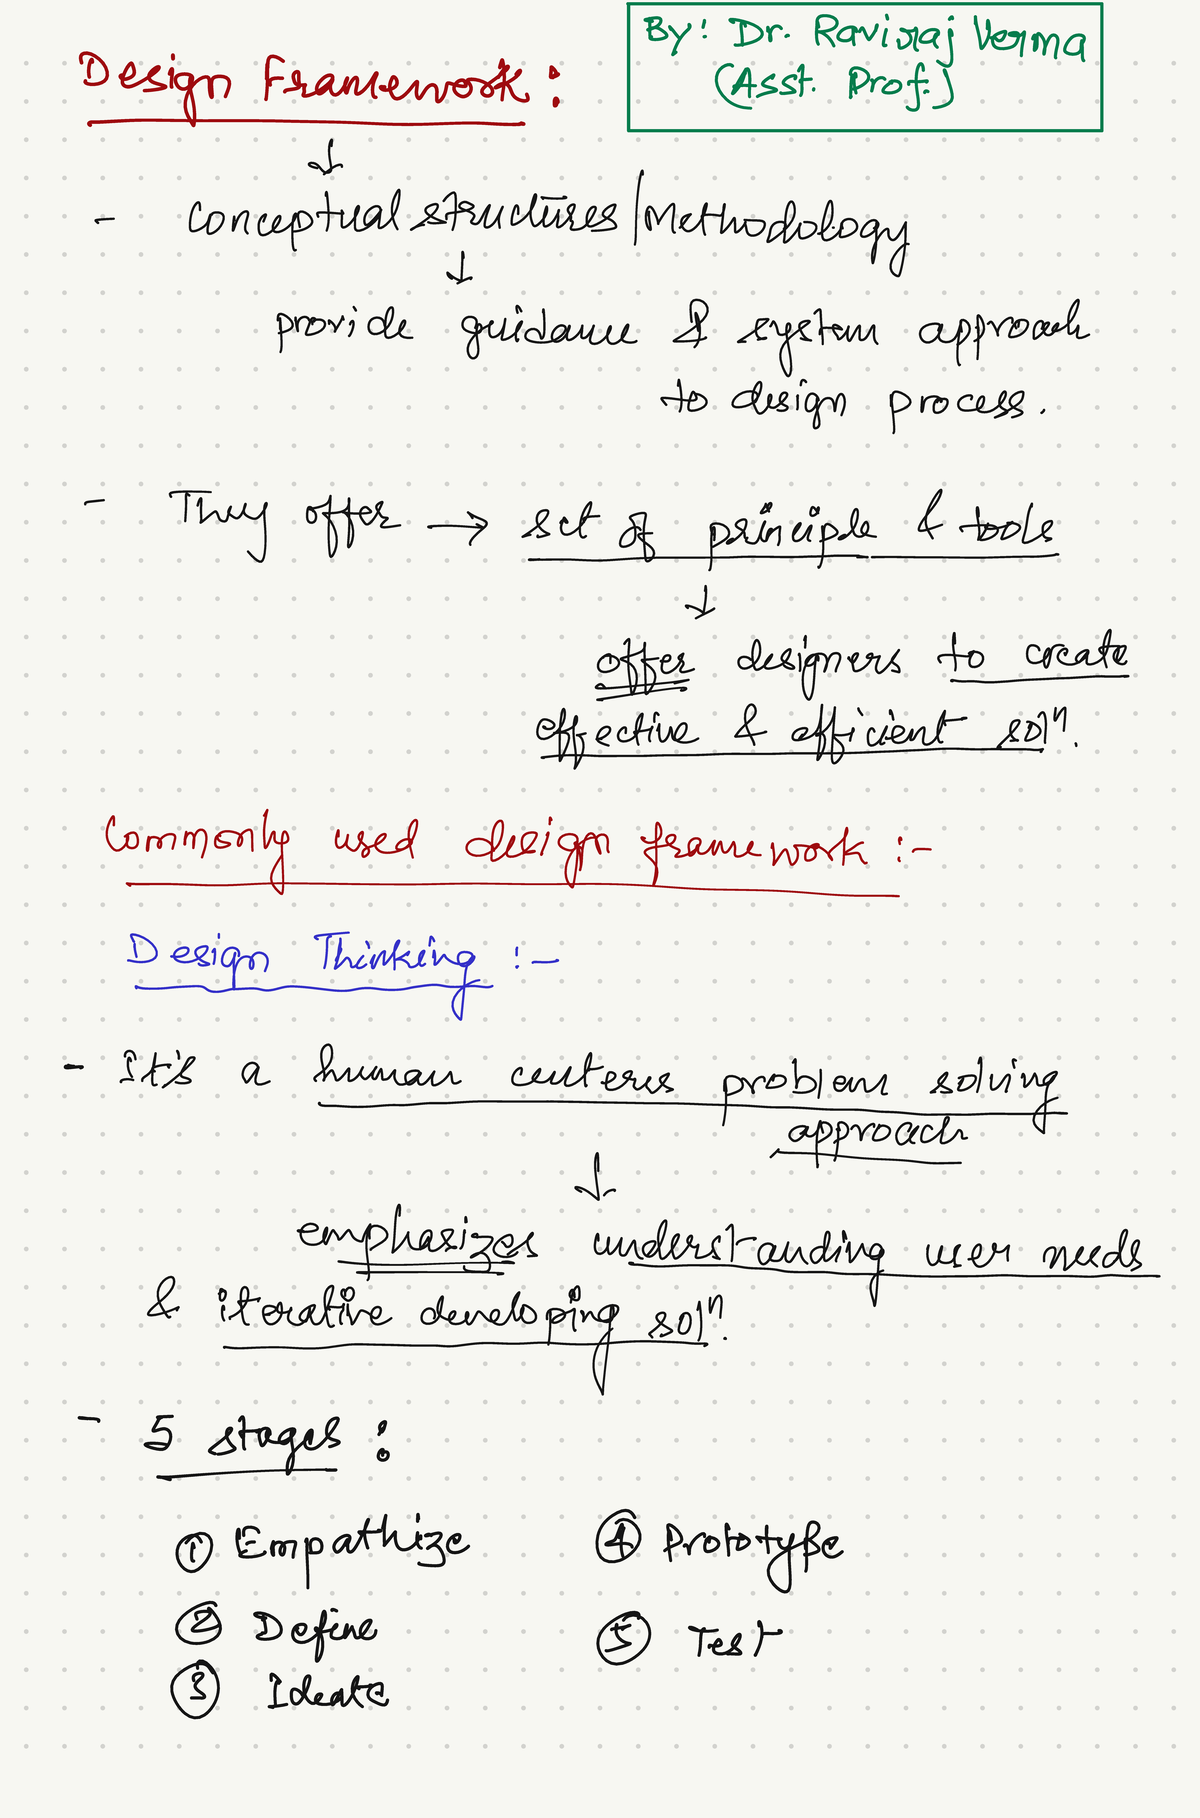 Design Framework :
By: Dr. Raviraj Verma
(Asst. Prof.)
↓
- Conceptual structures / Methodology
↓
provide guidance & system approach
to design process.
- They offer → set of principle & tools
↓
offer designers to create
effective & efficient solⁿ.
Commonly used design framework :-
Design Thinking :-
- It's a human centeres problem solving
approach
↓
emphasizes understanding user needs
& iterative developing solⁿ.
- 5 stages :
① Empathize ④ Prototype
② Define ⑤ Test
③ Ideate